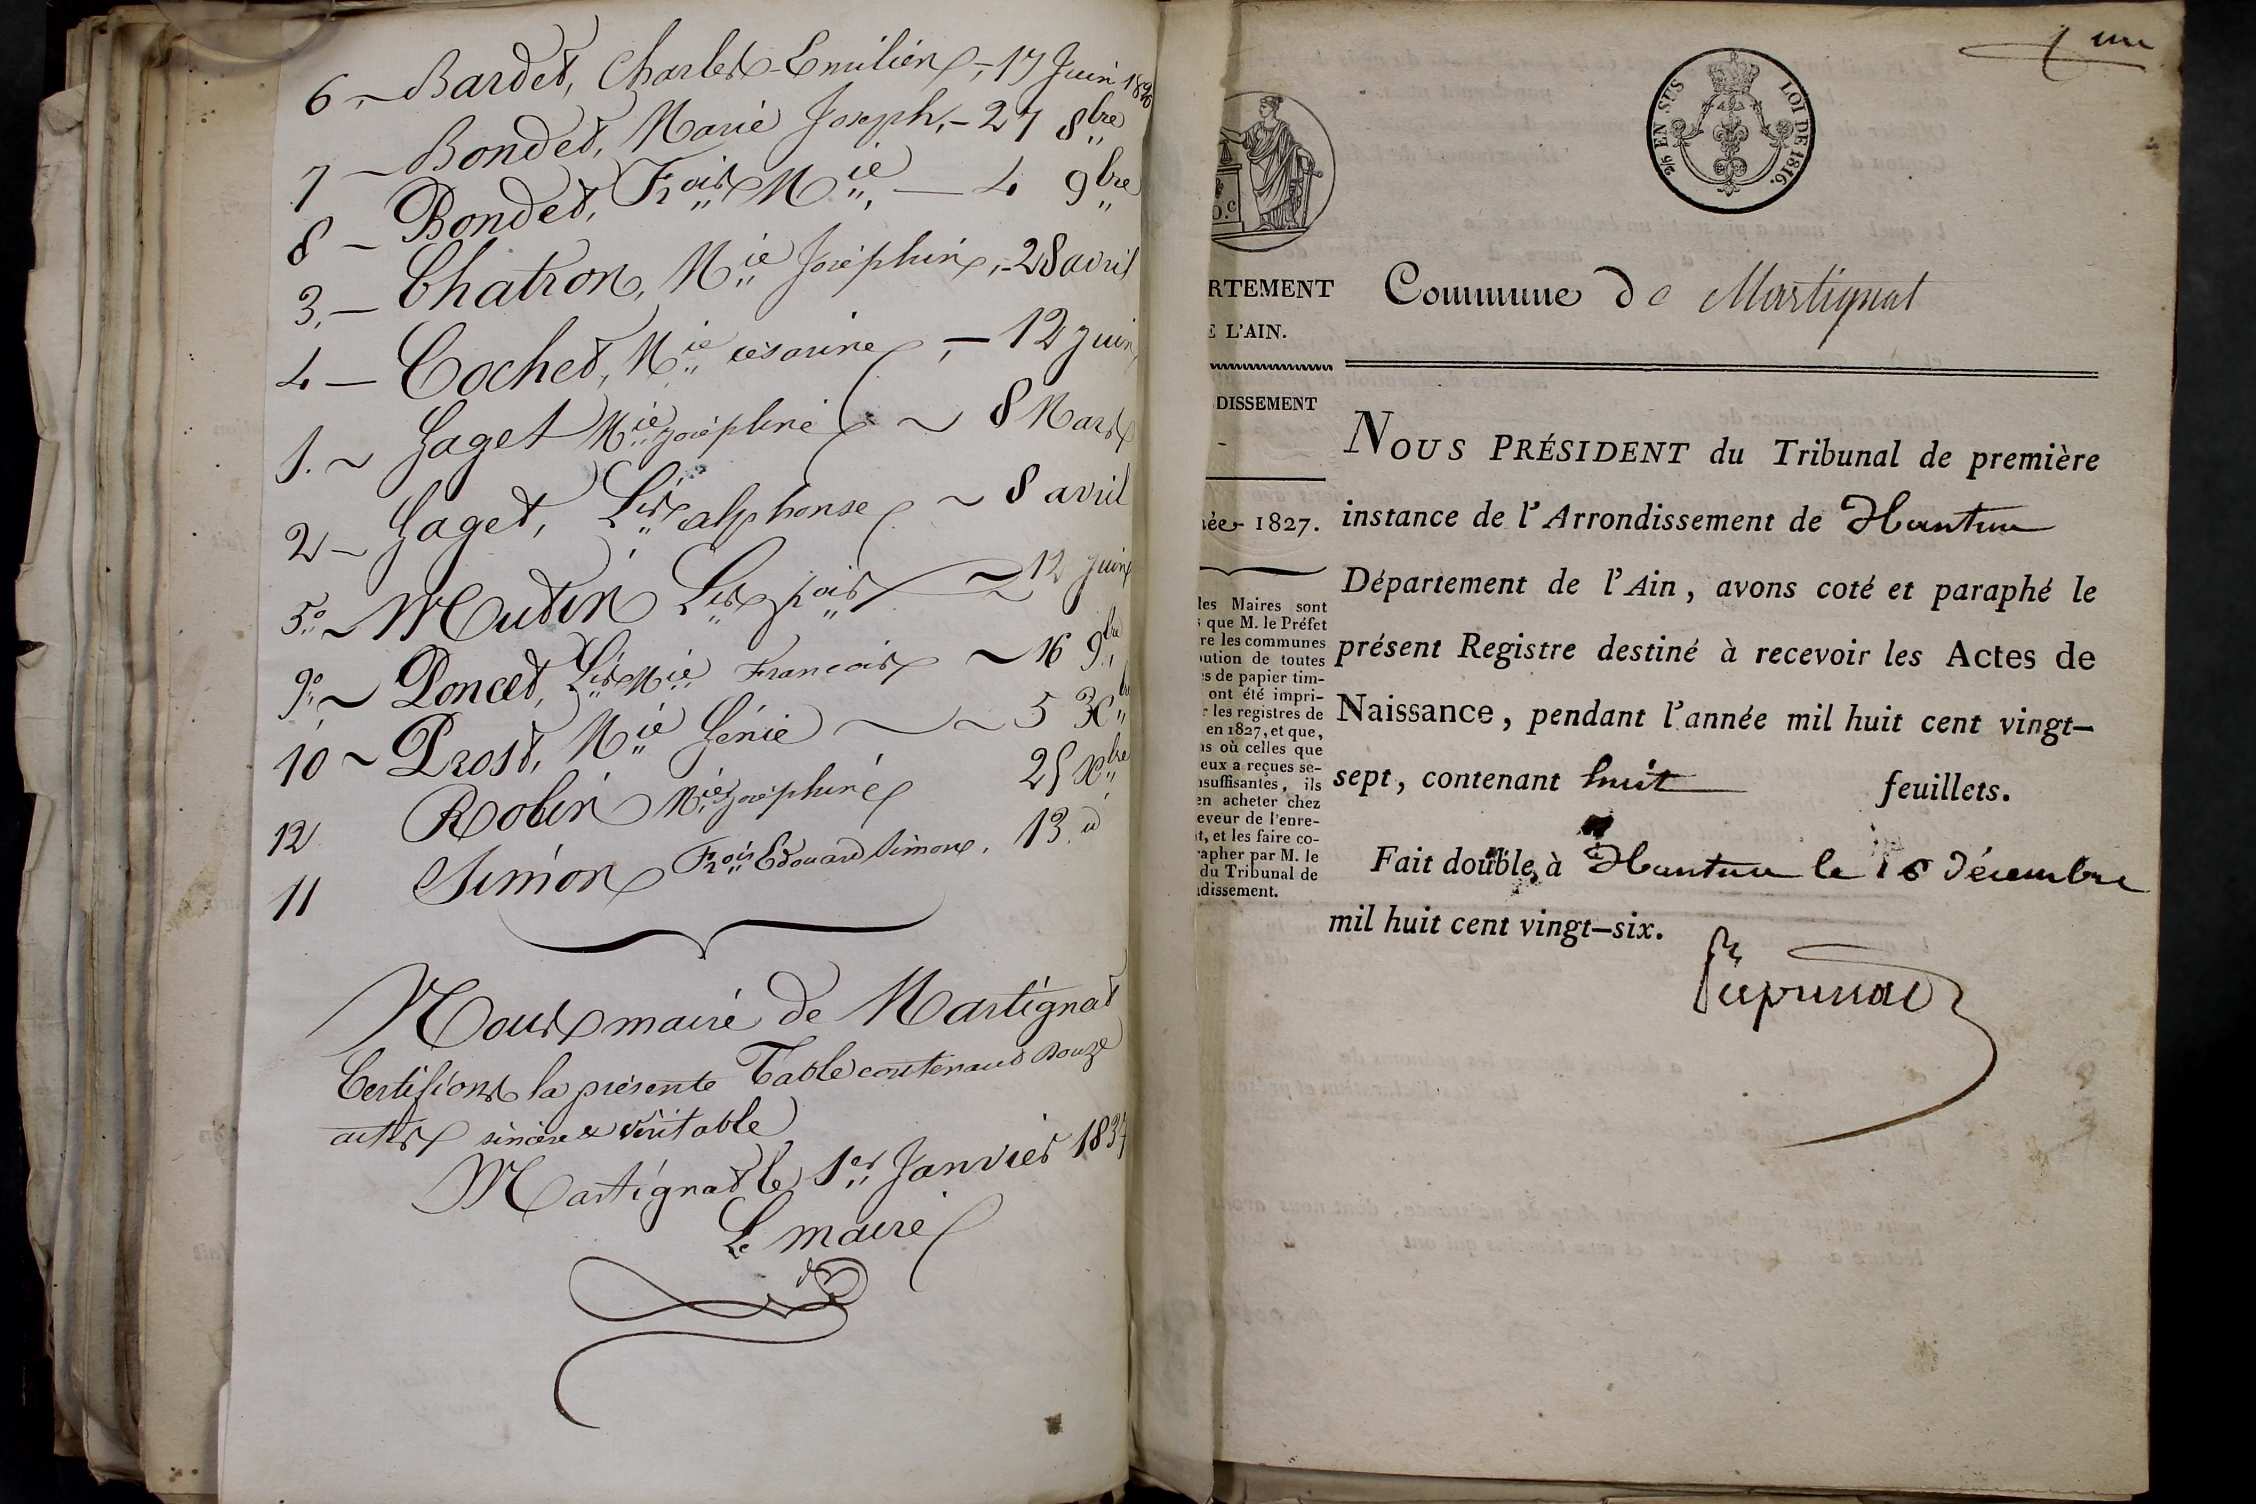 6. ~ Bardet, Charles-Emilien, - 17 Juin 1826
7 ~ Bondet, Marie Joseph, - 27 8bre
8 ~ Bondet, Frois Mie, — 4 9bre
3. — Chatron, Mie Joséphine, - 28 avril
4 — Cochet, Mie césarine, — 12 juin
1. ~ Gaget Mie joséphine ~ 8 Mars
2 ~ Gaget, Lis alphonse ~ 8 avril
5o ~ Mutin Lis frois ~ 12 juin
9o ~ Poncet, Lis Mie François ~ 16 9bre
10 ~ Prost, Mie Génie ~ ~ 5 Xbre
12 Robin Mie joséphine 25 Xbre
11 Simon Frois Edouard Simon. 13. d
Nous maire de Martignat
Certifions la présente Table contenant Douze
actes sincère & véritable
Martignat le 1er Janvier 183
Le maire
un
2/5 EN SUS LOI DE 1816.
RTEMENT
E L'AIN.
DISSEMENT
ée 1827.
les Maires sont
s que M. le Préfet
re les communes
ution de toutes
s de papier tim-
ont été impri-
r les registres de
en 1827, et que,
ns où celles que
eux a reçues se-
nsuffisantes, ils
en acheter chez
eveur de l'enre-
t, et les faire co-
rapher par M. le
du Tribunal de
dissement.
Commune de Martignat
NOUS PRÉSIDENT du Tribunal de première
instance de l'Arrondissement de Nantua
Département de l'Ain, avons coté et paraphé le
présent Registre destiné à recevoir les Actes de
Naissance, pendant l'année mil huit cent vingt-
sept, contenant huit feuillets.
Fait double, à Nantua le 16 Décembre
mil huit cent vingt-six.